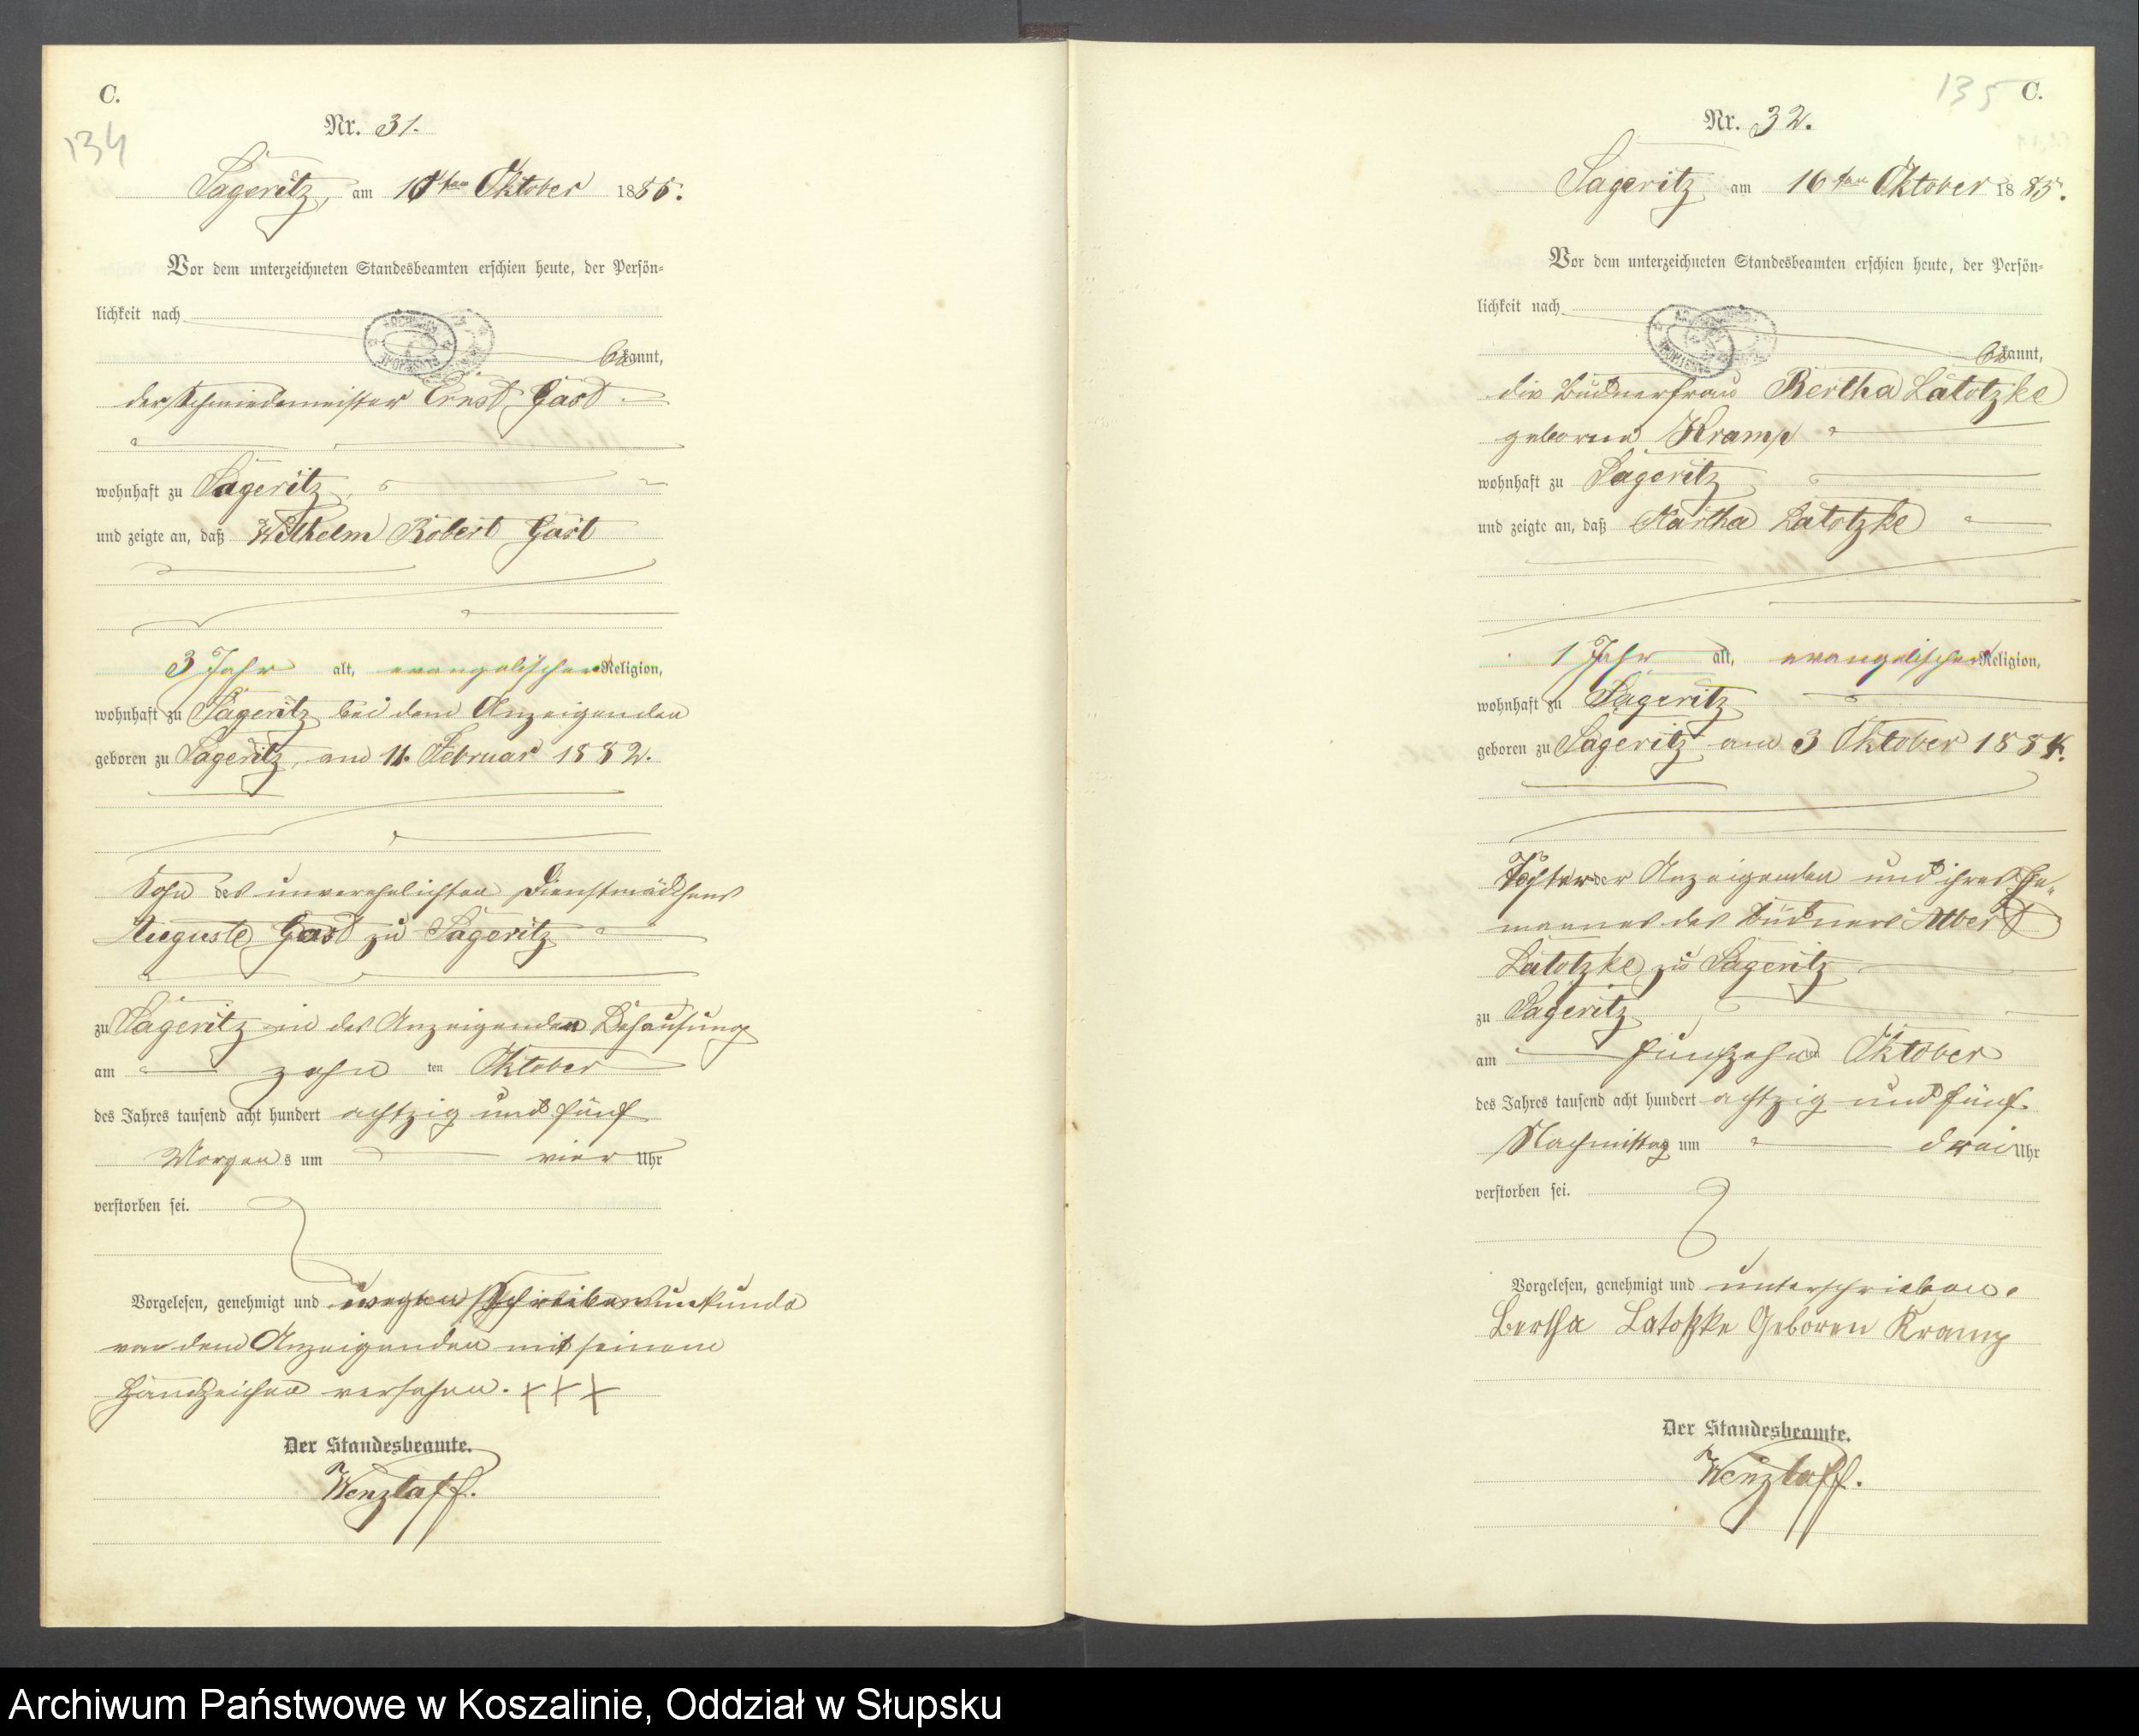 C.
134
Nr. 31.
Sageritz, am 10ten Oktober 1885.
Vor dem unterzeichneten Standesbeamten erschien heute, der Persön-
lichkeit nach
bekannt,
der Schmiedemeister Ernst Gast
wohnhaft zu Sageritz,
und zeigte an, daß Wilhelm Robert Gast
3 Jahr alt, evangelischer Religion,
wohnhaft zu Sageritz bei dem Anzeigenden
geboren zu Sageritz, am 11. Februar 1882.
Sohn des unverehelichten Dienstmädchens
Auguste Gast zu Sageritz
zu Sageritz in des Anzeigenden Behausung
am zehn ten Oktober
des Jahres tausend acht hundert achtzig und fünf
Morgens um vier Uhr
verstorben sei.
Vorgelesen, genehmigt und wegen Schreibensunkunde
von dem Anzeigenden mit seinem
Handzeichen versehen. +++
Der Standesbeamte.
Wenzlaff.
135 C.
Nr. 32.
Sageritz am 16ten Oktober 1885.
Vor dem unterzeichneten Standesbeamten erschien heute, der Persön-
lichkeit nach
bekannt,
die Büdnerfrau Bertha Latotzke
geborene Kramp
wohnhaft zu Sageritz
und zeigte an, daß Martha Latotzke
1 Jahr alt, evangelischer Religion,
wohnhaft zu Sageritz
geboren zu Sageritz am 3 Oktober 1884.
Tochter der Anzeigenden und ihres Ehe-
mannes des Büdners Albert
Latotzke zu Sageritz
zu Sageritz
am fünfzehn ten Oktober
des Jahres tausend acht hundert achtzig und fünf
Nachmittag um drei Uhr
verstorben sei.
Vorgelesen, genehmigt und unterschrieben.
Bertha Latotzke Geboren Kramp
Der Standesbeamte.
Wenzlaff.
Archiwum Państwowe w Koszalinie, Oddział w Słupsku